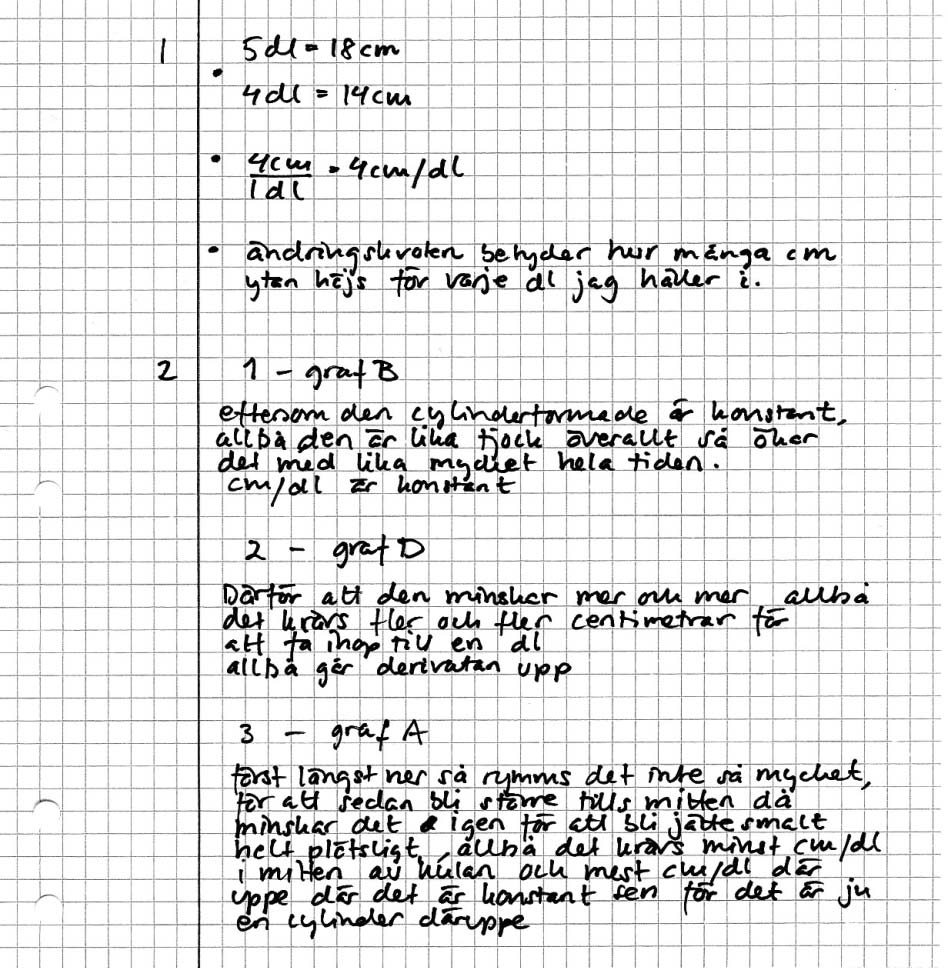 1 5dl = 18cm
4dl = 14cm
4cm/1dl = 4cm/dl
ändringskvoten betyder hur många cm
ytan höjs för varje dl jag häller i.
2 1 - graf B
eftersom den cylinderformade är konstant,
alltså den är lika tjock överallt så ökar
det med lika mycket hela tiden.
cm/dl är konstant
2 - graf D
Därför att den minskar mer och mer alltså
det krävs fler och fler centimetrar för
att få ihop till en dl
alltså går derivatan upp
3 - graf A
först längst ner så rymms det inte så mycket,
för att sedan bli större tills mitten då
minskar det igen för att bli jättesmalt
helt plötsligt, alltså det krävs minst cm/dl
i mitten av kulan och mest cm/dl där
uppe där det är konstant sen för det är ju
en cylinder däruppe